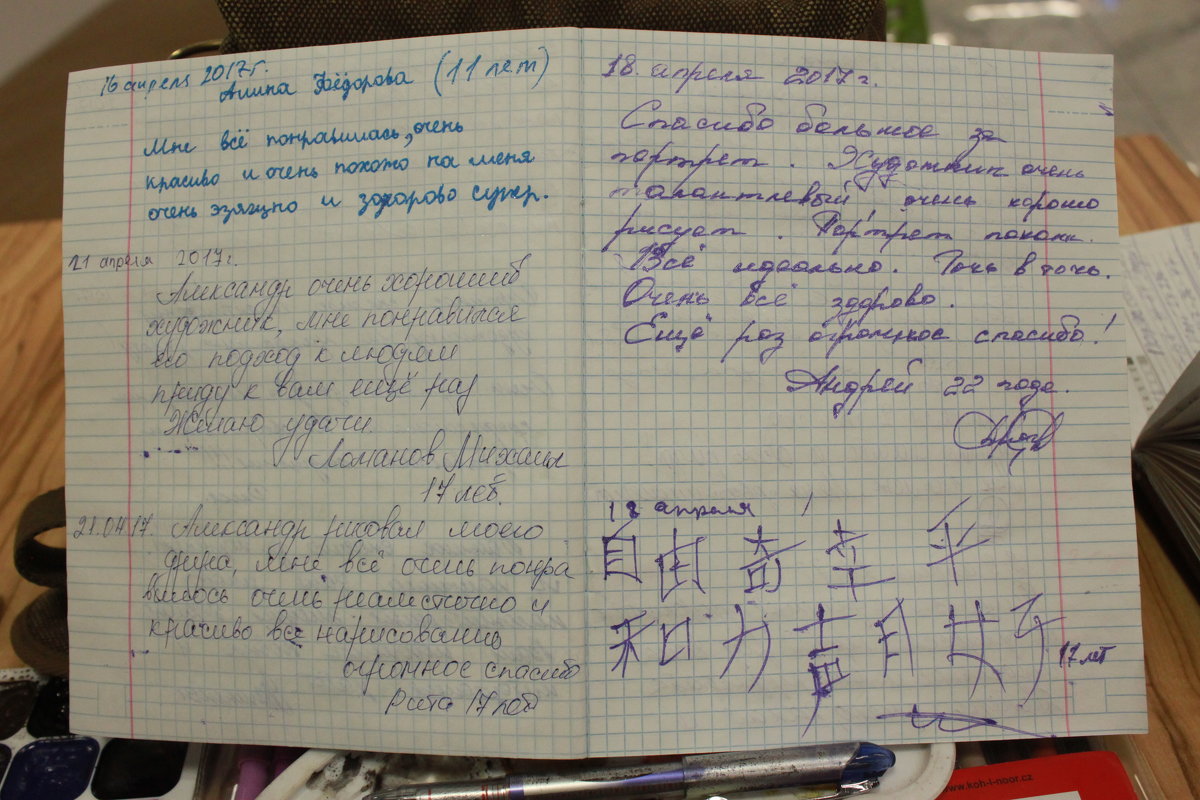 16 апреля 2017г.
Алина Фёдорова (11 лет)
Мне всё понравилась, очень
красиво и очень похожо на меня
очень эзящно и здорово супер.
21 апреля 2017г.
Александр очень хороший
художник, мне понравился
его подход к людям
приду к вам ещё раз
Желаю удачи.
Ломанов Михаил
17 лет.
21.04.17. Александр рисовал моего
друга, мне всё очень понра
вилось очень реалистично и
красиво все нарисованно
огромное спасибо
Рита 17 лет
18. апреля 2017 г.
Спасибо большое за
портрет. Художник очень
талантлевый, очень хорошо
рисует. Портрет похож.
Всё идеально. Точь в точь.
Очень всё здорово.
Ещё роз огромное спасибо!
Андрей 22 года.
18 апреля
自由 奇 幸 平
和 力 喜 月 好
17 лет
www.koh-i-noor.cz